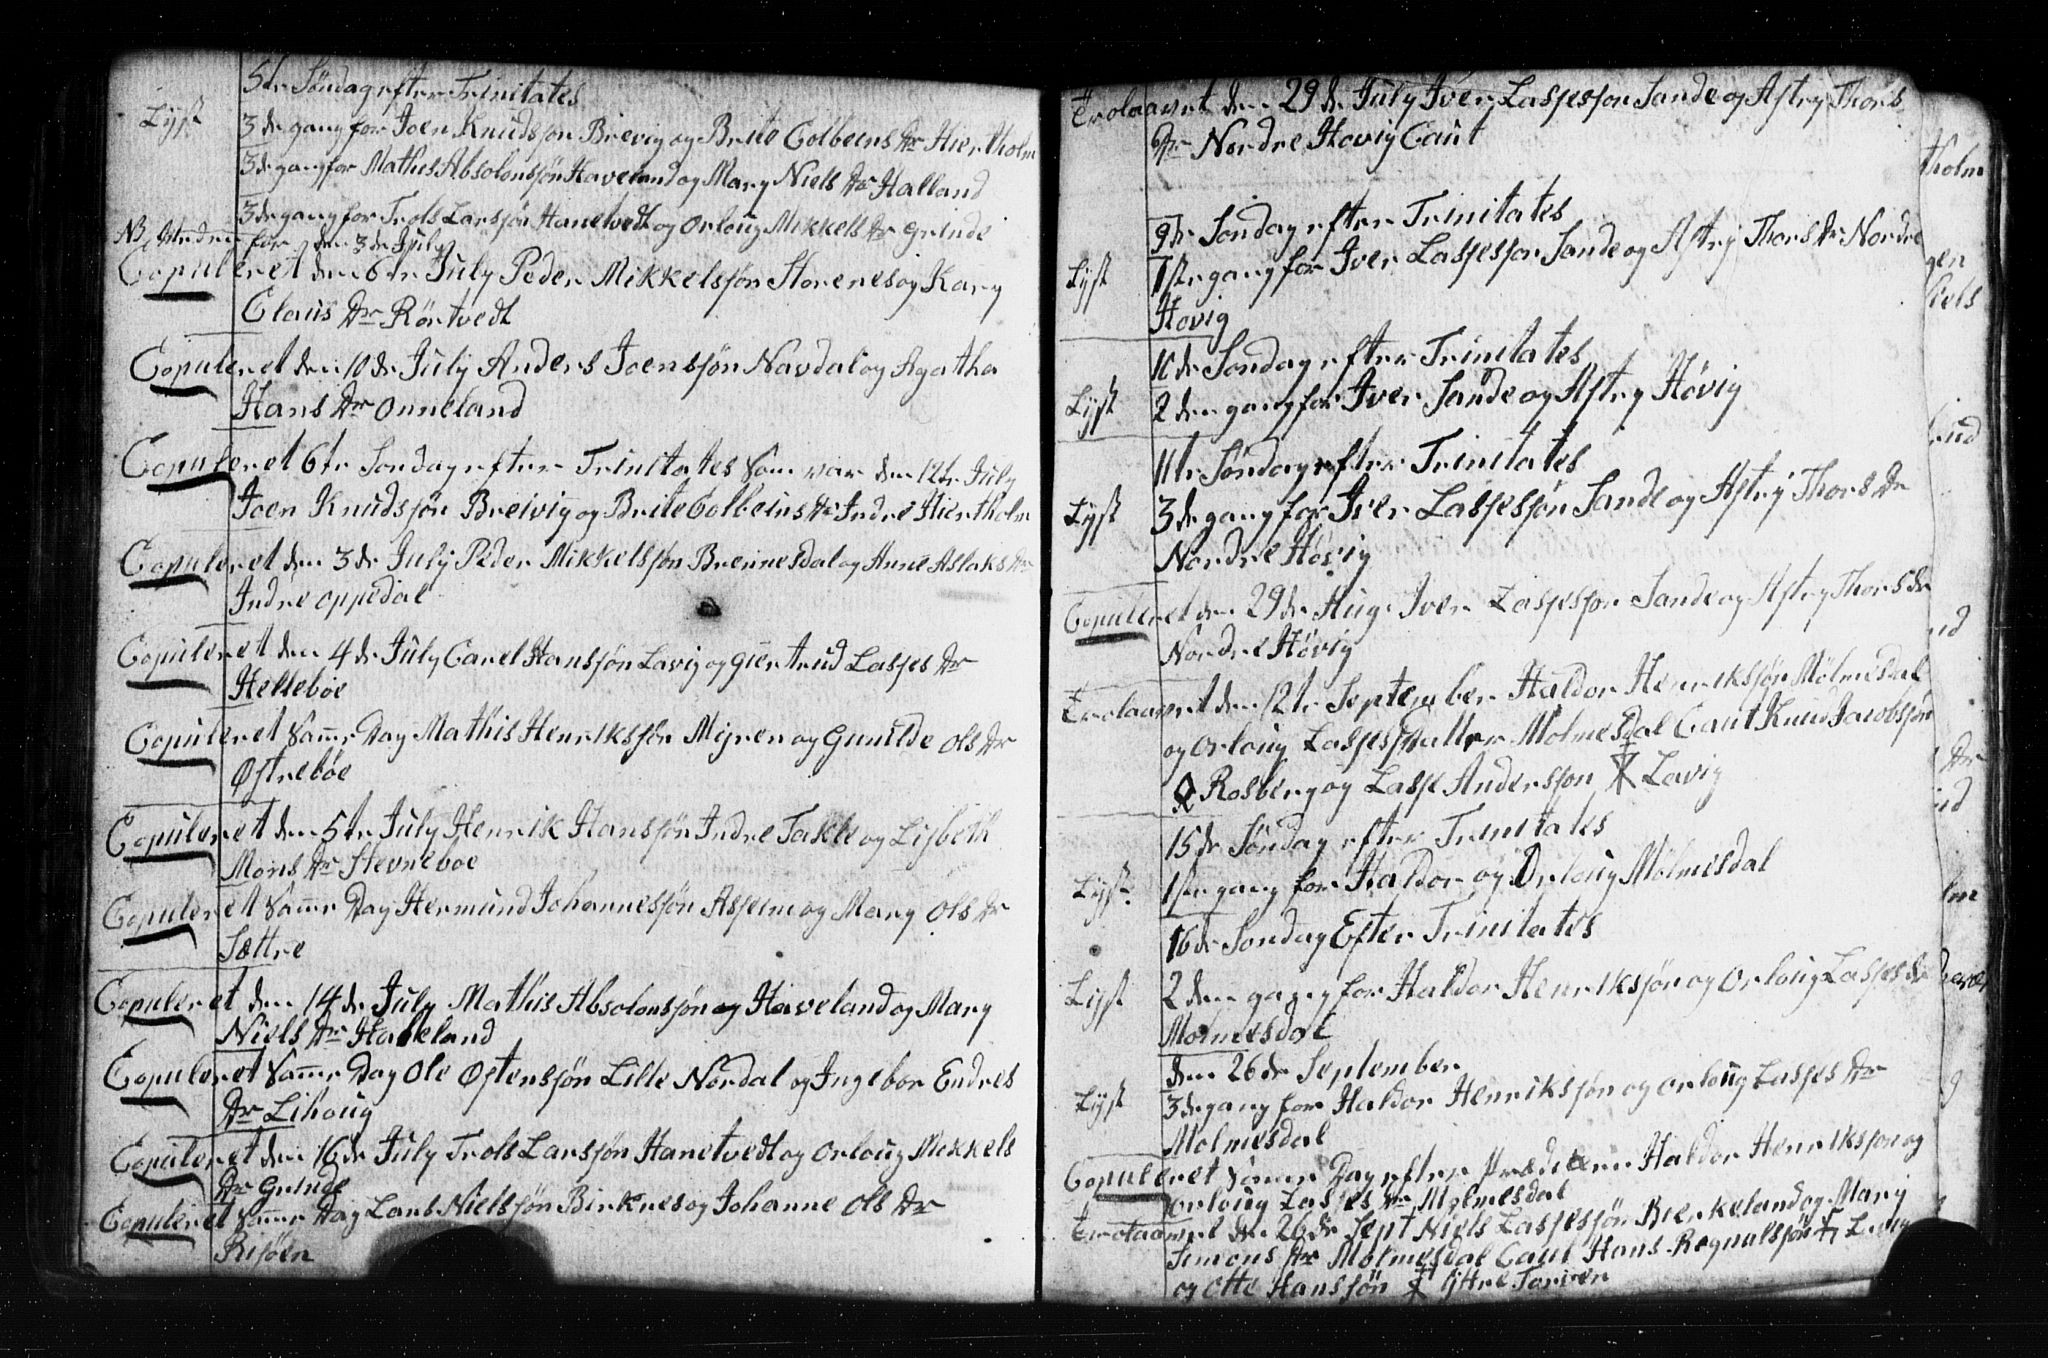 5te Søndag efter Trinitates
Lyst 3de gang for Joen Knudsøn Brevig og Brite Colbeens Dr Hiertholm
3de gang for Mathis Absolonsøn Haveland og Mary Niels Dr Halland
3de gang for Trols Larssøn Hanetvedt og Orloug Mikkels Dr Grinde
NB for den 3de July
Copuleret den 6te July Peder Mikkelsson Storenes og Kary
Claus Dr Rörtvedt
Copuleret den 10de July Anders Joensøn Navdal og Agatha
Hans Dr Onneland
Copuleret 6te Søndag efter Trinitates Som var den 12te July
Joen Knudsøn Breivig og Brite Colbeins Dr Indre Hiertholm
Copuleret den 3de July Peder Mikkelsøn Brennesdal og Anne Aslaks Dr
Indre Oppedal
Copuleret den 4de July Carel Hansøn Lavig og Giertrud Lasses Dr
Hellebøe
Copuleret Samme Dag Mathis Henriksøn Myren og Gunilde Ols Dr
Østrebøe
Copuleret den 5te July Henrik Hansøn Indre Takle og Lisbeth
Mons Dr Stevneboe
Copuleret Samme Dag Hermund Johannesøn Asheim og Mary Ols Dr
Sættre
Copuleret den 14de July Mathis Absolonsøn Haveland og Mary
Niels Dr Halleland
Copuleret Samme Dag Ole Østensøn Lille Nordal og Ingebor Endres
Dr Lihoug
Copuleret den 16de July Trols Larssøn Hanetvedt og Orloug Mikkels
Dr Grinde
Copuleret Samme Dag Lars Nielssøn Birknes og Johanne Ols Dr
Risöen
Trolaavet den 29de July Iver Lassesson Sande og Astry Thors
Dr Nordre Hovig Caut
9de Søndag efter Trinitates
Lyst 1ste gang for Iver Lassesson Sande og Astry Thors Dr Nordre
Hovig
10de Søndag efter Trinitates
Lyst 2den gang for Iver Sande og Astry Hövig
11te Søndag efter Trinitates
Lyst 3de gang for Iver Lassessøn Sande og Astry Thors Dr
Nordre Hövig
Copuleret den 29de Aug. Iver Lassesson Sande og Astry Thors Dr
Nordre Hövig
Trolaavet den 12te September Haldor Henriksøn Mölmesdal
og Orloug Lassesdatter Mölmesdal Caut Knud Jacobsøn
Rosberg og Lasse Andersson Lavig
15de Søndag efter Trinitates
Lyst 1ste gang for Haldor og Orloug Mölmesdal
16de Søndag Efter Trinitates
Lyst 2den gang for Haldor Henriksøn og Orloug Lasses Dr
Molmesdal
den 26de September
Lyst 3de gang for Haldor Henriksøn og Orloug Lasses Dr
Molmesdal
Copuleret Samme Dag efter Prædiken Haldor Henrikson og
Orloug Lasses Dr Mölmesdal
Trolaavet den 26de Sept Niels Lassesøn Birkeland og Mary
Simons Dr Molmesdal Caut Hans Rognalsøn Lavig
og Otte Hanssøn Torven